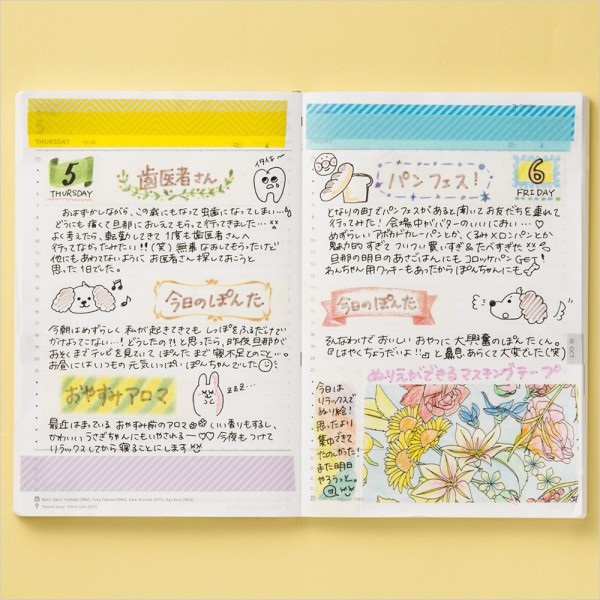 THURSDAY
5
THURSDAY
歯医者さん
イタイよ〜
おはずかしながら、この歳にもなって虫歯になってしまい…
どうにも痛くて旦那におしえてもらって行ってきました…
よく考えたら、転勤してきて1度も歯医者さんへ
行ってなかったみたい!!(笑) 無事なおしてもらったけど
他にもあわてないように お医者さん探しておこうと
思った1日でした。
今日のぽんた
今朝はめずらしく 私が起きてきても しっぽをふるだけで
かけよってこない…! どうしたの!?と思ったら、昨夜旦那が
おそくまでテレビを見ていて ぽんたまで寝不足とのこと…。
お昼にはいつもの元気いっぱい、ぽんちゃんでした
おやすみアロマ
ZZZ...
最近はまっている おやすみ前のアロマ いい香りもするし、
かわいいうさぎちゃんにもいやされる〜♡♡ 今夜もつけて
リラックスしてから寝ることにします
6
FRIDAY
パンフェス!
となりの町でパンフェスがあると聞いてお友だちを連れて
行ってみた! 会場中がバターのいいにおい…♡
めずらしいアボカドカレーパンとか、くるみメロンパンとか
魅力的すぎて ついつい買いすぎ&たべすぎた
旦那の明日のあさごはんにも コロッケパンGET!
わんちゃん用クッキーもあったからぽんちゃんにも
今日のぽんた
そんなわけで おいしい おやつに 大興奮のぽんたくん。
『はやくちょうだいよ!!』と鼻息あらくて大変でした(笑)
ぬりえができるマスキングテープ
今日は
リラックスで
ぬり絵!
思ったより
集中できて
たのしかった!
また明日
やろうっと。